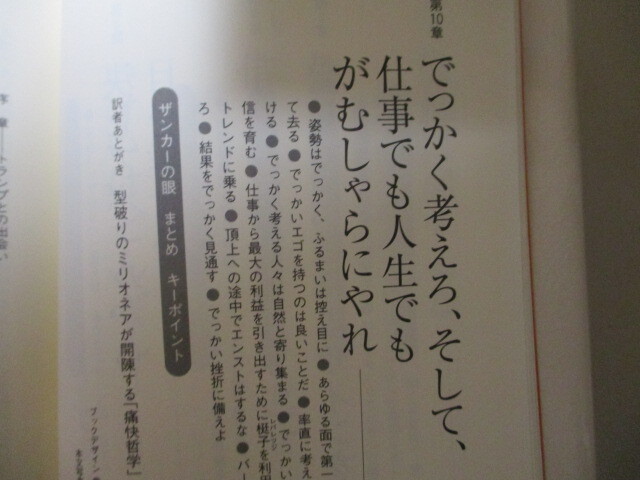 第10章
でっかく考えろ、そして、
仕事でも人生でも
がむしゃらにやれ
●姿勢はでっかく、ふるまいは控え目に ●あらゆる面で第一
て去る ●でっかいエゴを持つのは良いことだ ●率直に考え
ける ●でっかく考える人々は自然と寄り集まる ●でっかい
信を育む ●仕事から最大の利益を引き出すために梃子を利用
トレンドに乗る ●頂上への途中でエンストはするな ●パー
ろ ●結果をでっかく見通す ●でっかい挫折に備えよ
ザンカーの眼 まとめ キーポイント
訳者あとがき 型破りのミリオネアが開陳する「痛快哲学」
ブックデザイン
章――トランプとの出会い